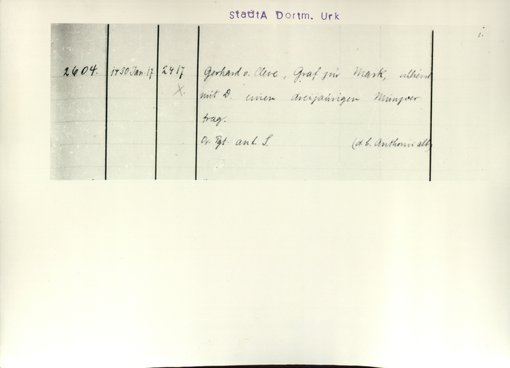 StadtA Dortm. Urk
2604. 1430 Jan 17 2417 Gerhard v. Cleve, Graf zur Mark,
X. mit D. einen dreijährigen Münzver
trag.
Or. Pgt. anh. S. (d. b. Anthonii abb)